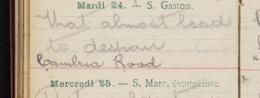 Mardi 24. — S. Gaston.
That almost leads
to despair
Cambria Road
Mercredi 25. — S. Marc, évangéliste.